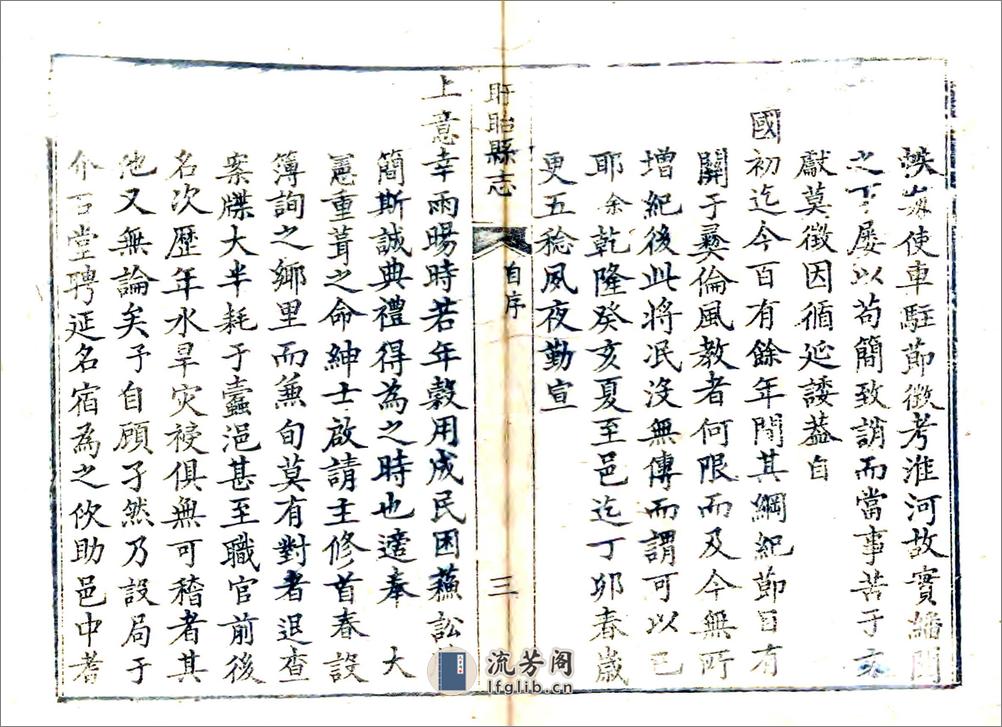 使車駐節徴考淮河故實繙閱
之下屡以苟簡致誚而當事苦于文
獻莫徴因循延諉葢自
國初迄今百有餘年間其綱紀節目有
關于彝倫風教者何限而及今無所
增紀後此将冺没無傳而謂可以已
耶余乾隆癸亥夏至邑迄丁卯春歲
更五稔夙夜勤宣
盱眙縣志
自序
三
上意幸雨暘時若年榖用成民困蘓訟
簡斯誠典禮得為之時也適奉 大
憲重葺之命紳士啟請主修首春設
簿詢之鄉里而兼旬莫有對者退查
案牒大半耗于蠧浥甚至職官前後
名次歴年水旱灾祲俱無可稽者其
他又無論矣予自顧孑然乃設局于
介石堂聘延名宿為之佽助邑中耆
流芳阁
lfglib.cn